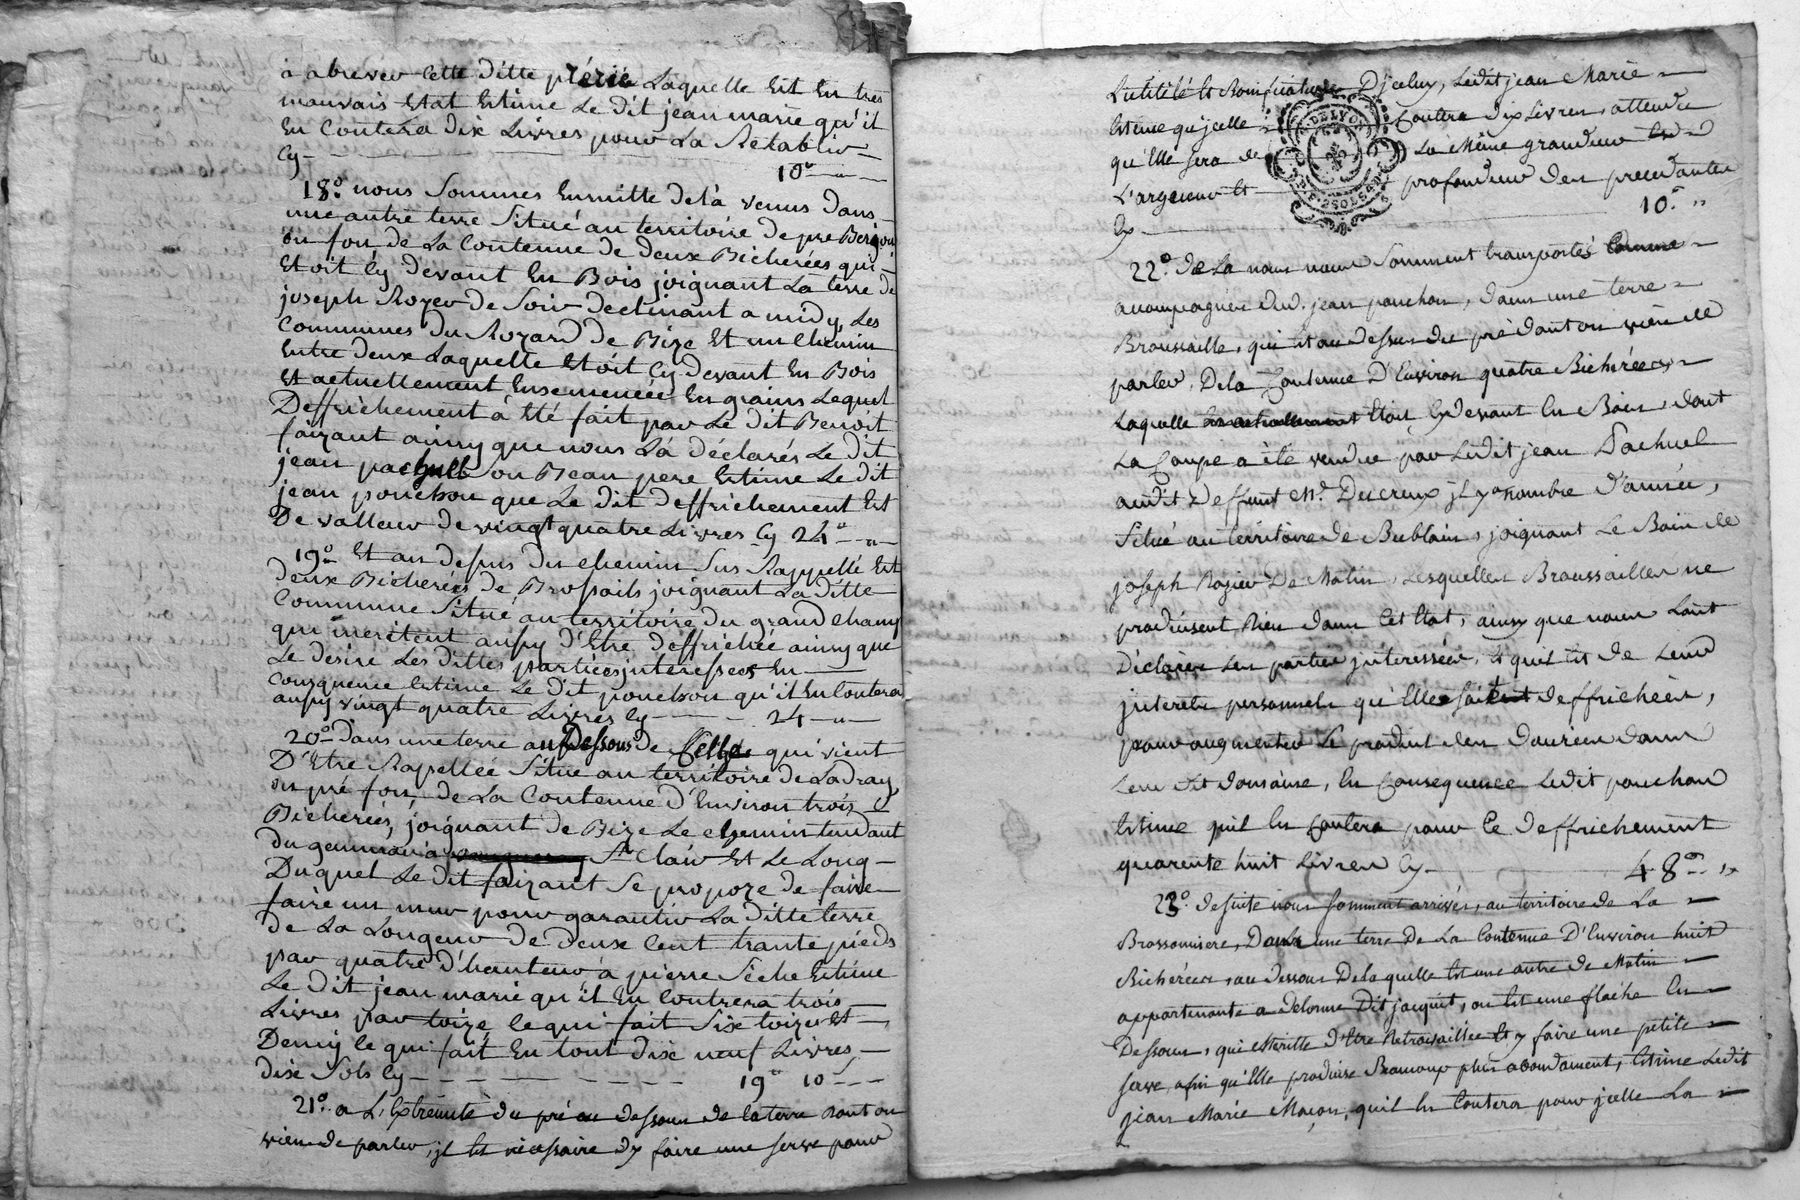 à abrever cette ditte prérie Laquelle Est En tres
mauvais Etat Estime Le dit jean marie qu'il
En Contera dix Livres pour La Retablir
Cy 10 "
18° nous Sommes Ensuitte delà venus dans
une autre terre Situé au territoire de pre Berjon
ou fon de La Contenue de deux Bicherées qui
Etoit Cy devant En Bois joignant La terre de
joseph Rozer de Soir declinant a midy, Les
Communes du Rozard de Bize Et un Chemin
Entre deux Laquelle Etoit Cy devant En Bois
Et actuellement Ensemencée En grains Lequel
Deffrichement à Eté fait par Le dit Benoit
faizant ainsy que nous L'à déclarés Le dit
jean pachull Son Beau pere Estime Le dit
jean ponchon que Le dit deffrichement Est
De valleur de vingt quatre Livres Cy 24 "
19° Et au depus du chemin Sus Rappellé Est
deux Bicherées de Brossails joignant La ditte
Commune Situé au territoire du grand champ
qui meritent aussy d'Etre deffrichée ainsy que
Le desire Les dittes partiees interessees En
Consquence Estime Le dit ponchon qu'il En Contera
aussy vingt quatre Livres Cy 24 "
20° dans une terre au Dessous de Celle qui vient
D'Etre Rapellée Situé au territoire de Ladray
ou pré fon de La Contenue d'Environ trois
Bicherées, joignant de Bize Le chemin tendant
du gemmai à St Clair Et Le Long
Duquel Le dit faizant Se propoze de faire
faire un mur pour garantir La ditte terre
de La Longeur de deux Cent trante pieds
par quatre d'hauteur à pierre Séche Estime
Le dit jean marie qu'il En Contrera trois
Livres par toize, le qui fait Six toizes Et
Demy le qui fait En tout dix neuf Livres
dix Sols Cy 19 10
21° a L'Extremité du pré au dessous de la terre dont on
vien de parler, jl Est nécessaire dy faire une serve pour
L'utilité Et Bonification D'jceluy, Ledit jean Marie
Estime qu'jcelle Coutera dix Livres, attendu
qu'Elle sera de La Même grandeur
L'argeur Et profondeur des precedantes
Cy 10 "
DE LYON
2 SOLS 4 D
22° de La nous nous Somment transportés
accompagnés dud. jean ponchon, dans une terre
Broussaille, qui est au dessus du pré dont on vien de
parler, De la Contenue D'Environ quatre Bicherées,
Laquelle Etoit Cy devant En Bois, dont
La Coupe a été vendue par Ledit jean Pachuel
audit deffunt Mr. Ducreux jl y a nombre d'année,
Situé au territoire de Bublain, joignant Le Bois de
joseph Rozier De Matin, Lesquelles Broussailles ne
produisent Rien dans Cet Etat, ainsy que nous L'ont
Déclarés Les parties jnteressées, Et quil Est de Leurs
jnterets personnels qu'Elles soient deffrichées,
pour augmenter Le produit des danrées dans
Leur dit domaine, En Consequence Ledit ponchon
Estime quil En Coutera pour Ce deffrichement
quarente huit Livres Cy 48 "
23° de suite nous Somment arrivés, au territoire de La
Brossonniere, Dans une terre De La Contenue D'Environ huit
Bicherées, au dessous De laquelle Est une autre de Matin
appartenante a Delorme Dit jacquit, ou Est une flache En
Dessous, qui Merite D'Etre Retravaillée Et y faire une petite
serve, afin qu'Elle produise Beaucoup plus abondament, Estime Ledit
jean Marie Maçon, quil En Coutera pour jcelle La